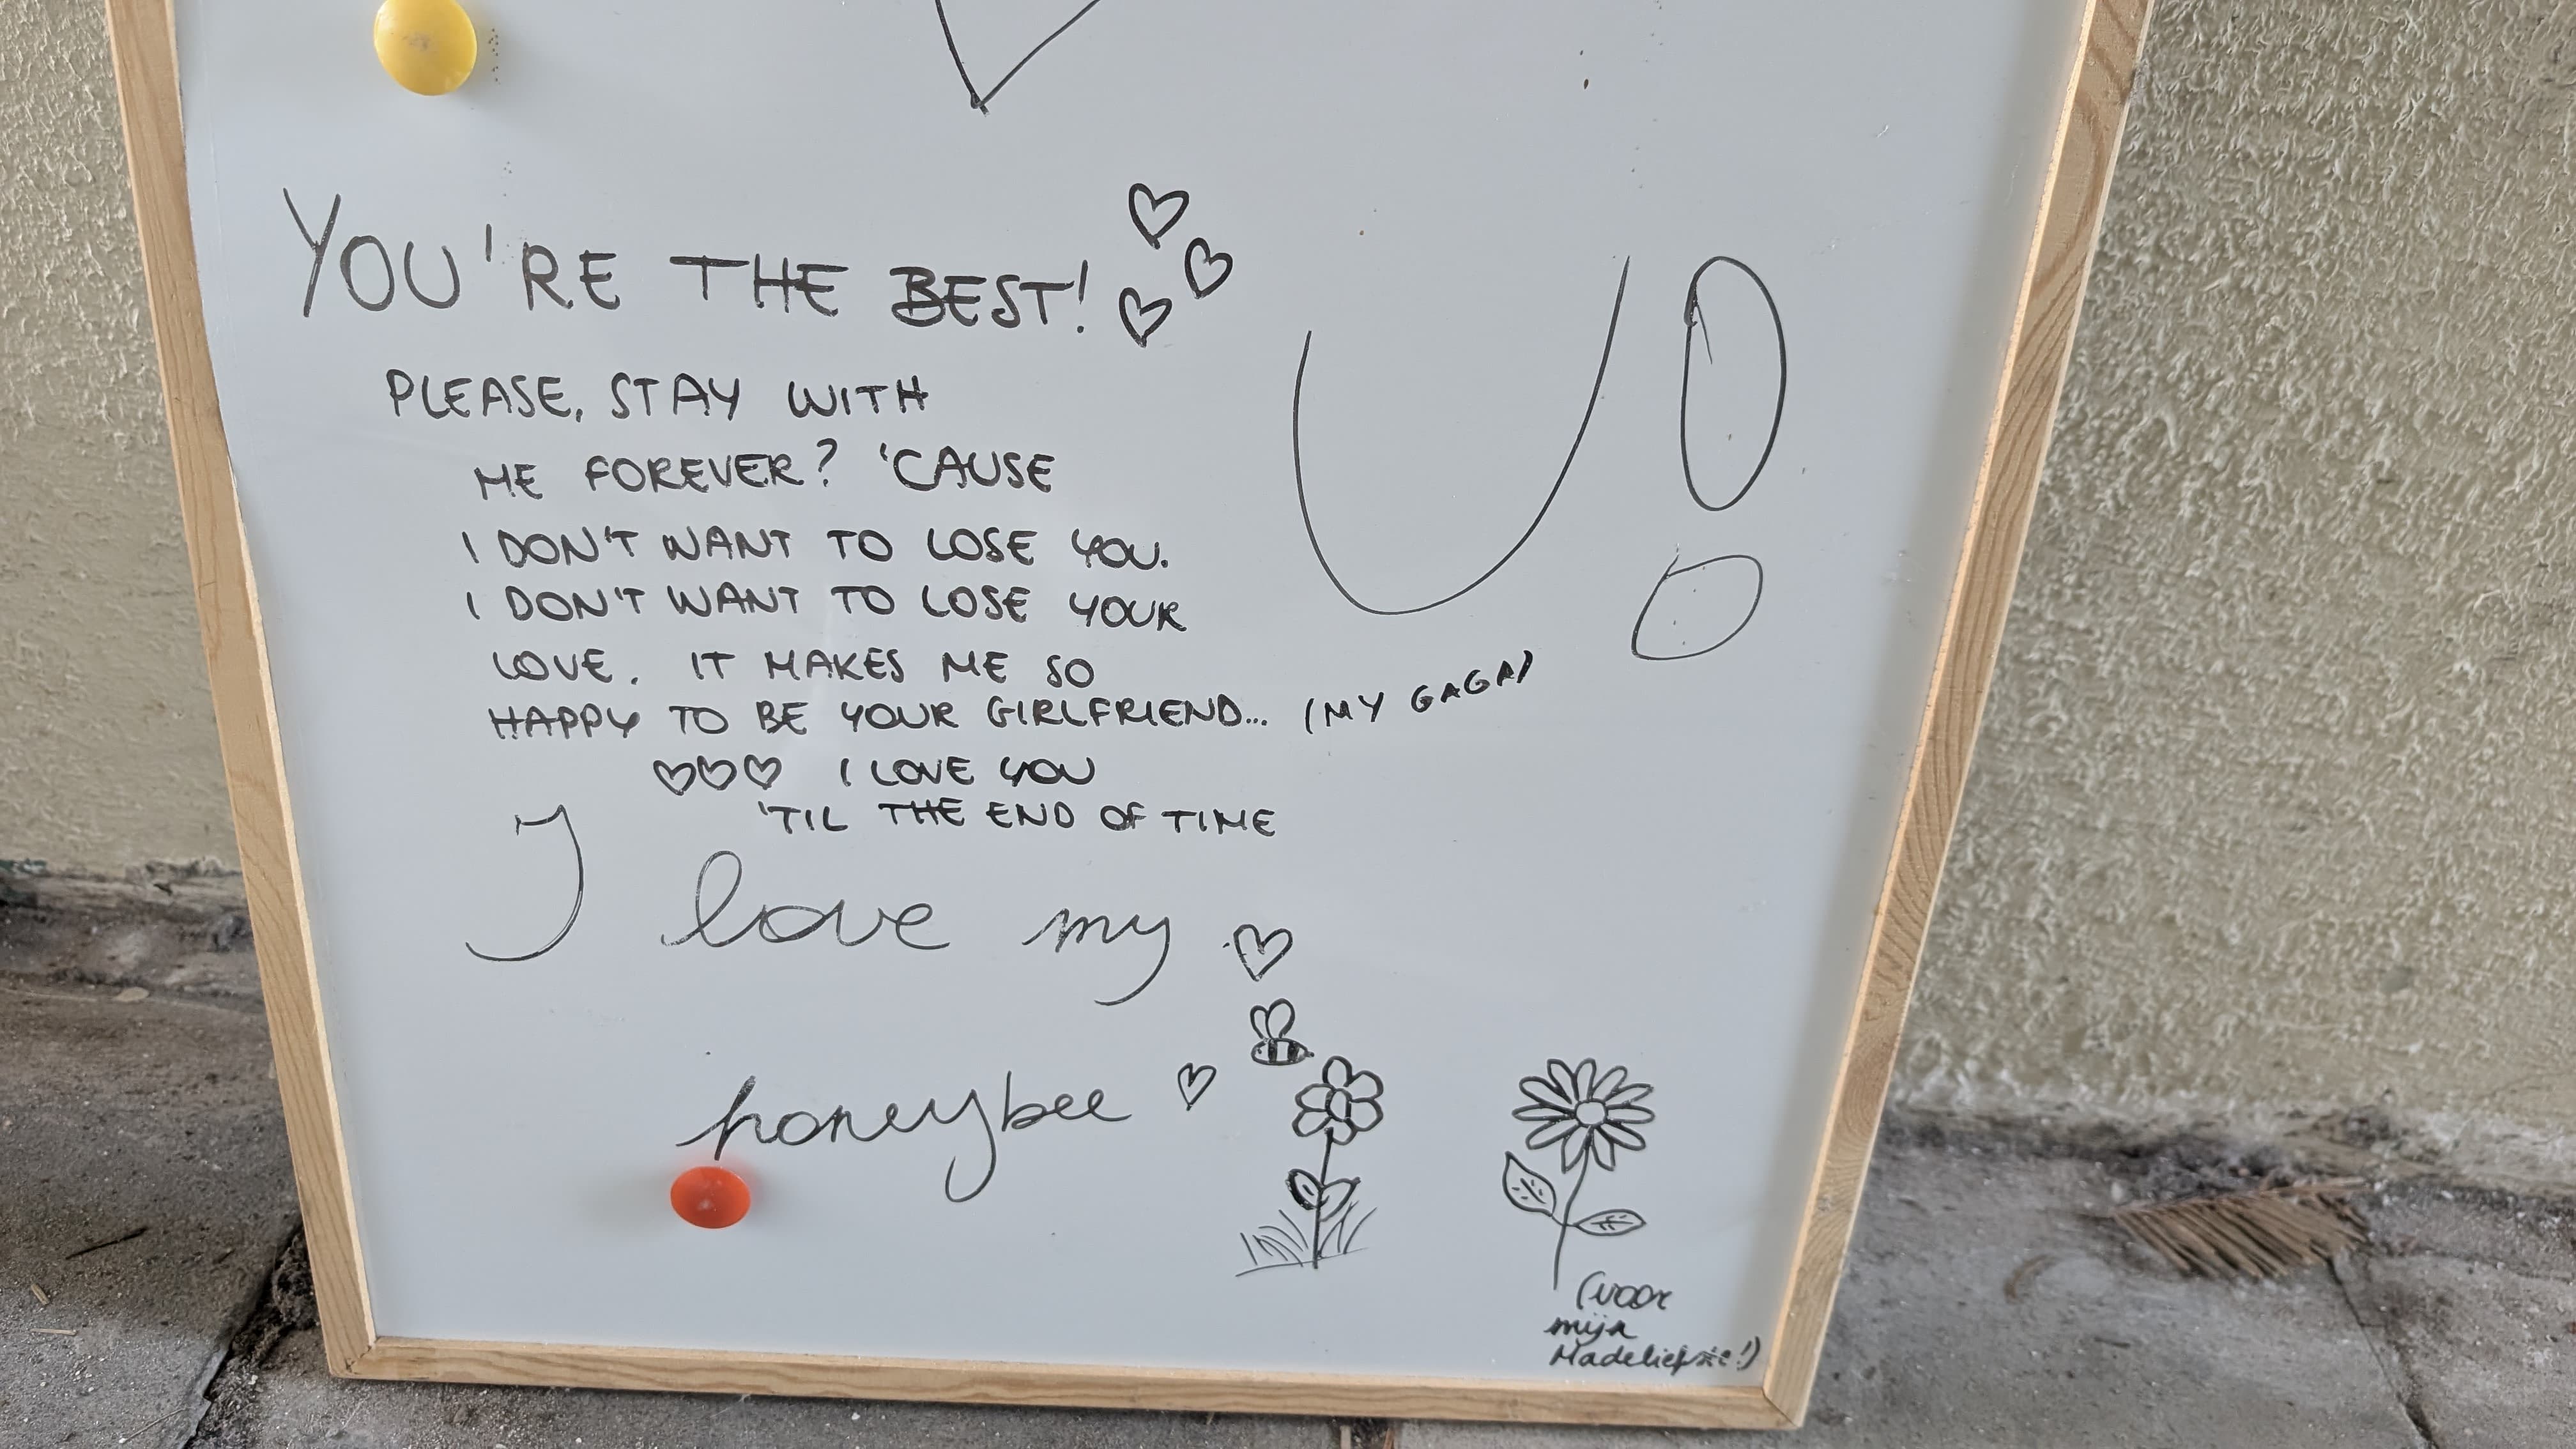 YOU'RE THE BEST!
PLEASE, STAY WITH
ME FOREVER? 'CAUSE
I DON'T WANT TO LOSE YOU.
I DON'T WANT TO LOSE YOUR
LOVE. IT MAKES ME SO
HAPPY TO BE YOUR GIRLFRIEND... (MY GAGA)
♡♡♡ I LOVE YOU
'TIL THE END OF TIME
U!
I love my
honeybee
(voor
mijn
Madeliefje!)